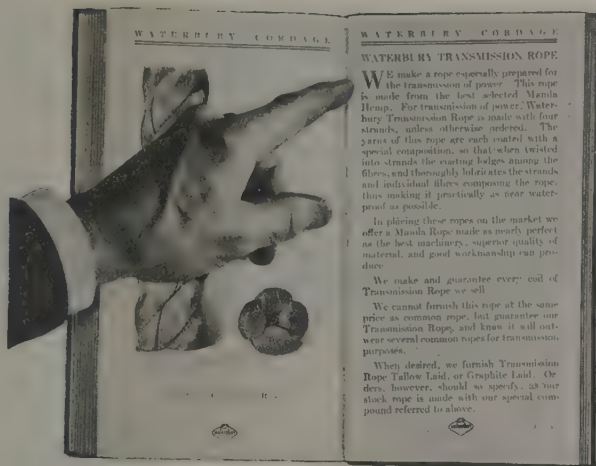 WATERBURY CORDAGE
WATERBURY CORDAGE
WATERBURY TRANSMISSION ROPE
WE make a rope especially prepared for
the transmission of power. This rope
is made from the best selected Manila
Hemp. For transmission of power, Water-
bury Transmission Rope is made with four
strands, unless otherwise ordered. The
yarns of this rope are each coated with a
special composition, so that when twisted
into strands the coating lodges among the
fibres, and thoroughly lubricates the strands
and individual fibres composing the rope,
thus making it practically as near water-
proof as possible.
In placing these ropes on the market we
offer a Manila Rope made as nearly perfect
as the best machinery, superior quality of
material, and good workmanship can pro-
duce
We make and guarantee every coil of
Transmission Rope we sell
We cannot furnish this rope at the same
price as common rope, but guarantee our
Transmission Rope, and know it will out-
wear several common ropes for transmission
purposes.
When desired, we furnish Transmission
Rope Tallow Laid, or Graphite Laid. Or-
ders, however, should so specify, as our
stock rope is made with our special com-
pound referred to above.